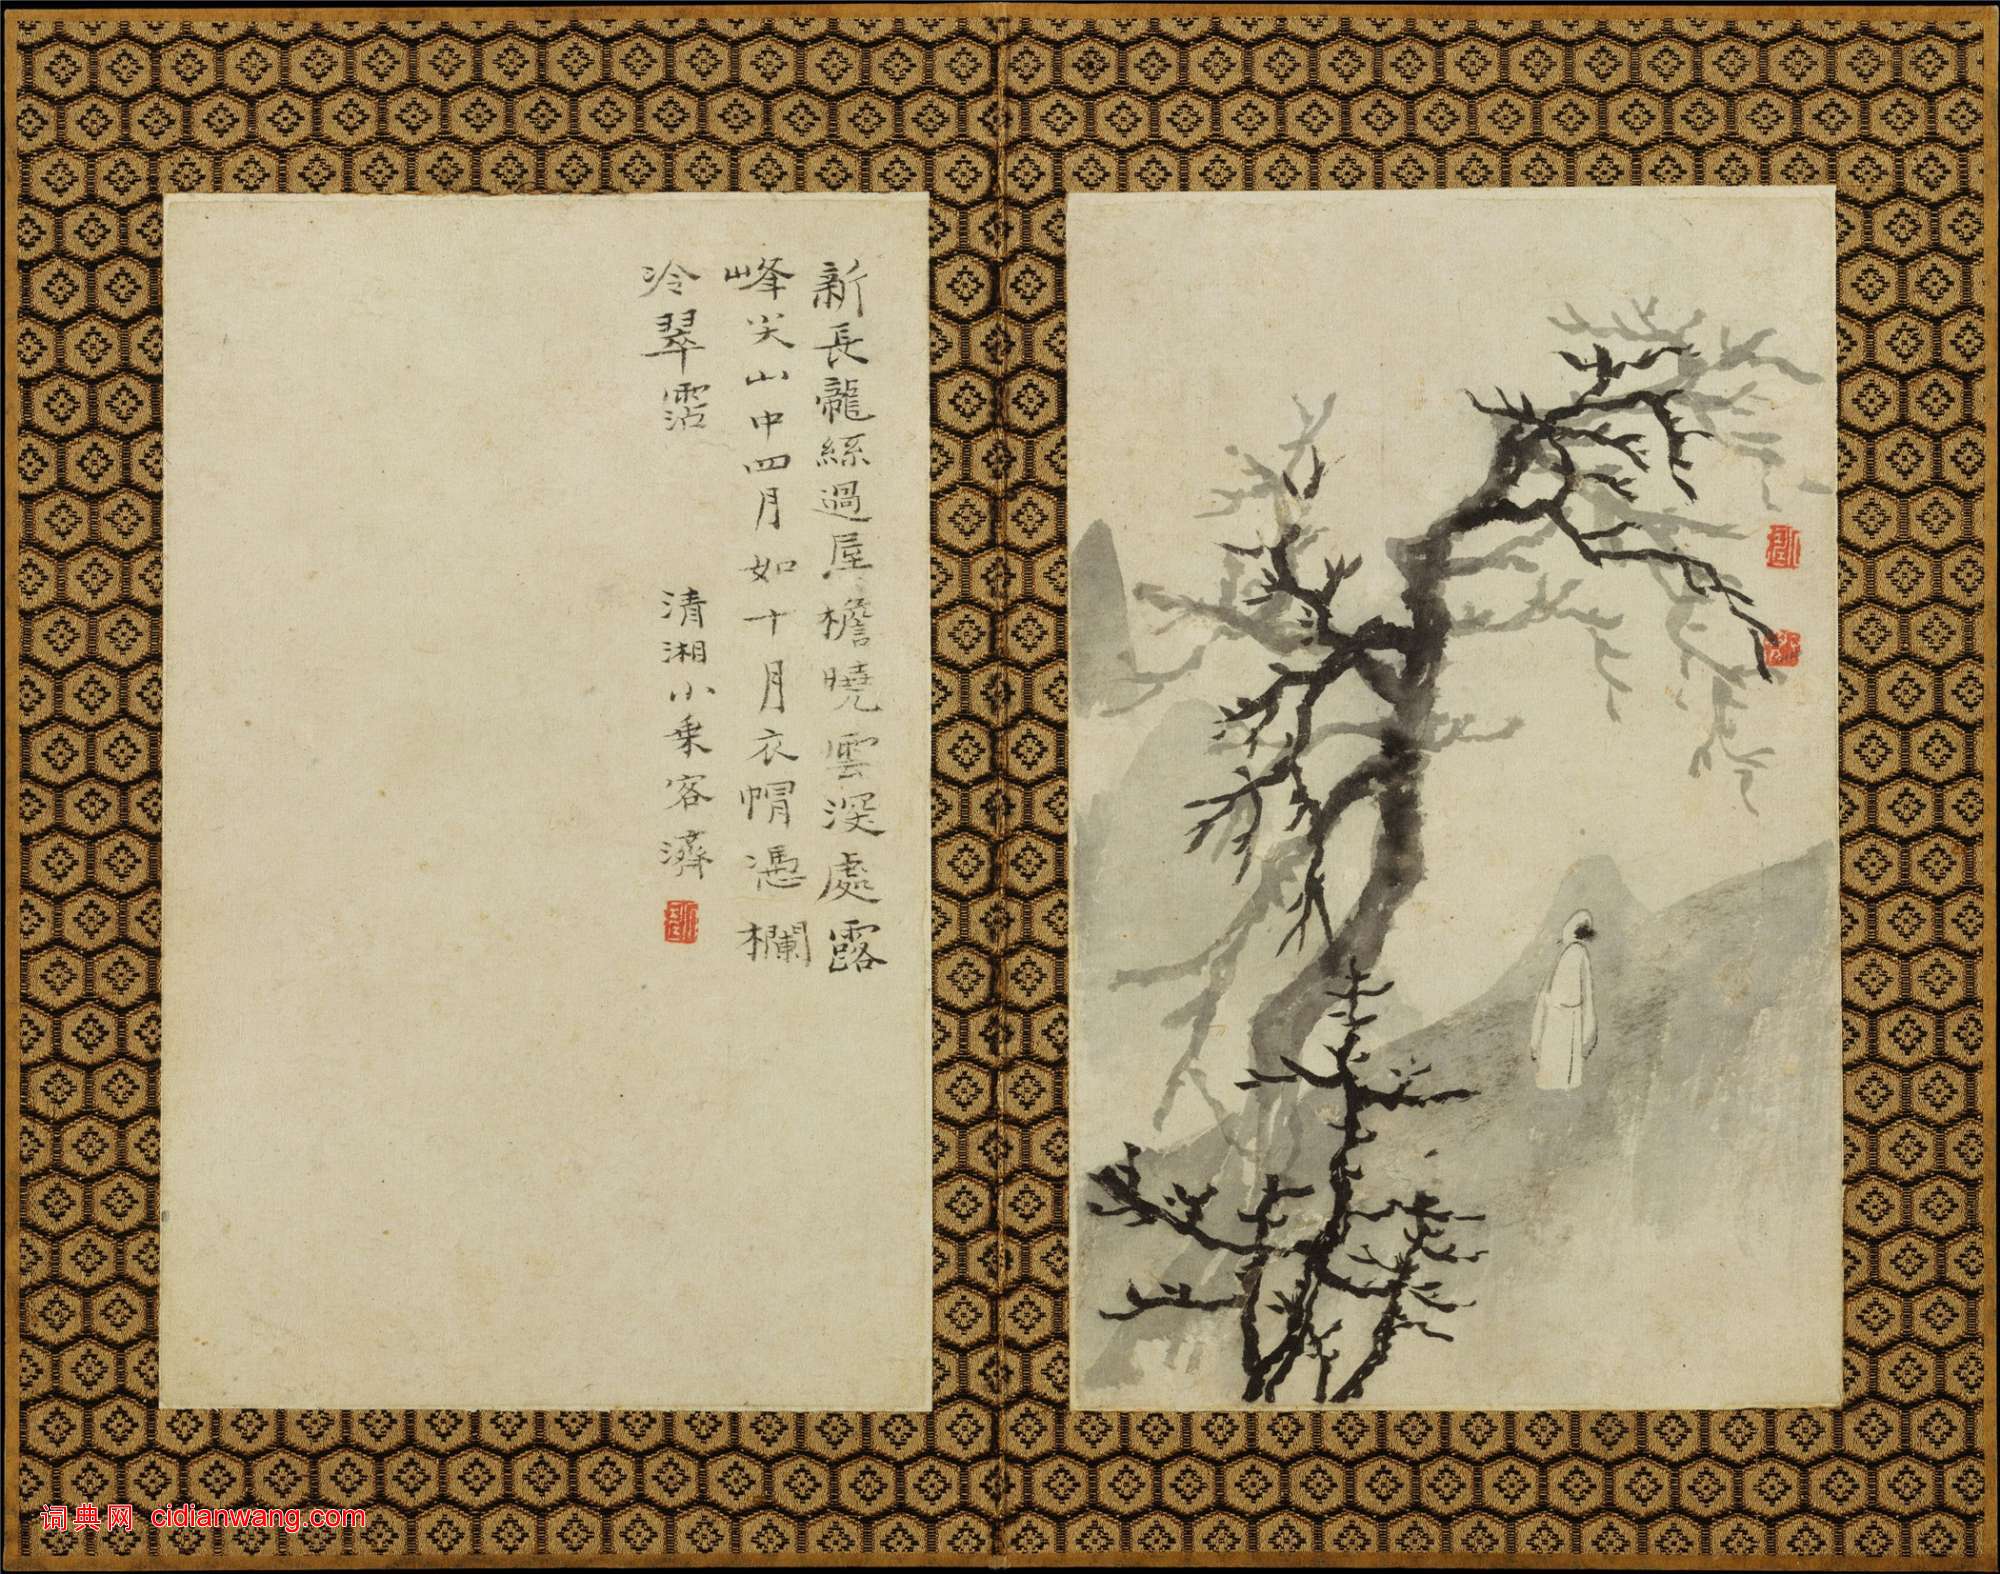 新長龍絲過屋檐曉雲深處露
峰尖山中四月如十月衣帽憑欄
冷翠霑
清湘小乗客濟
词典网 cidianwang.com